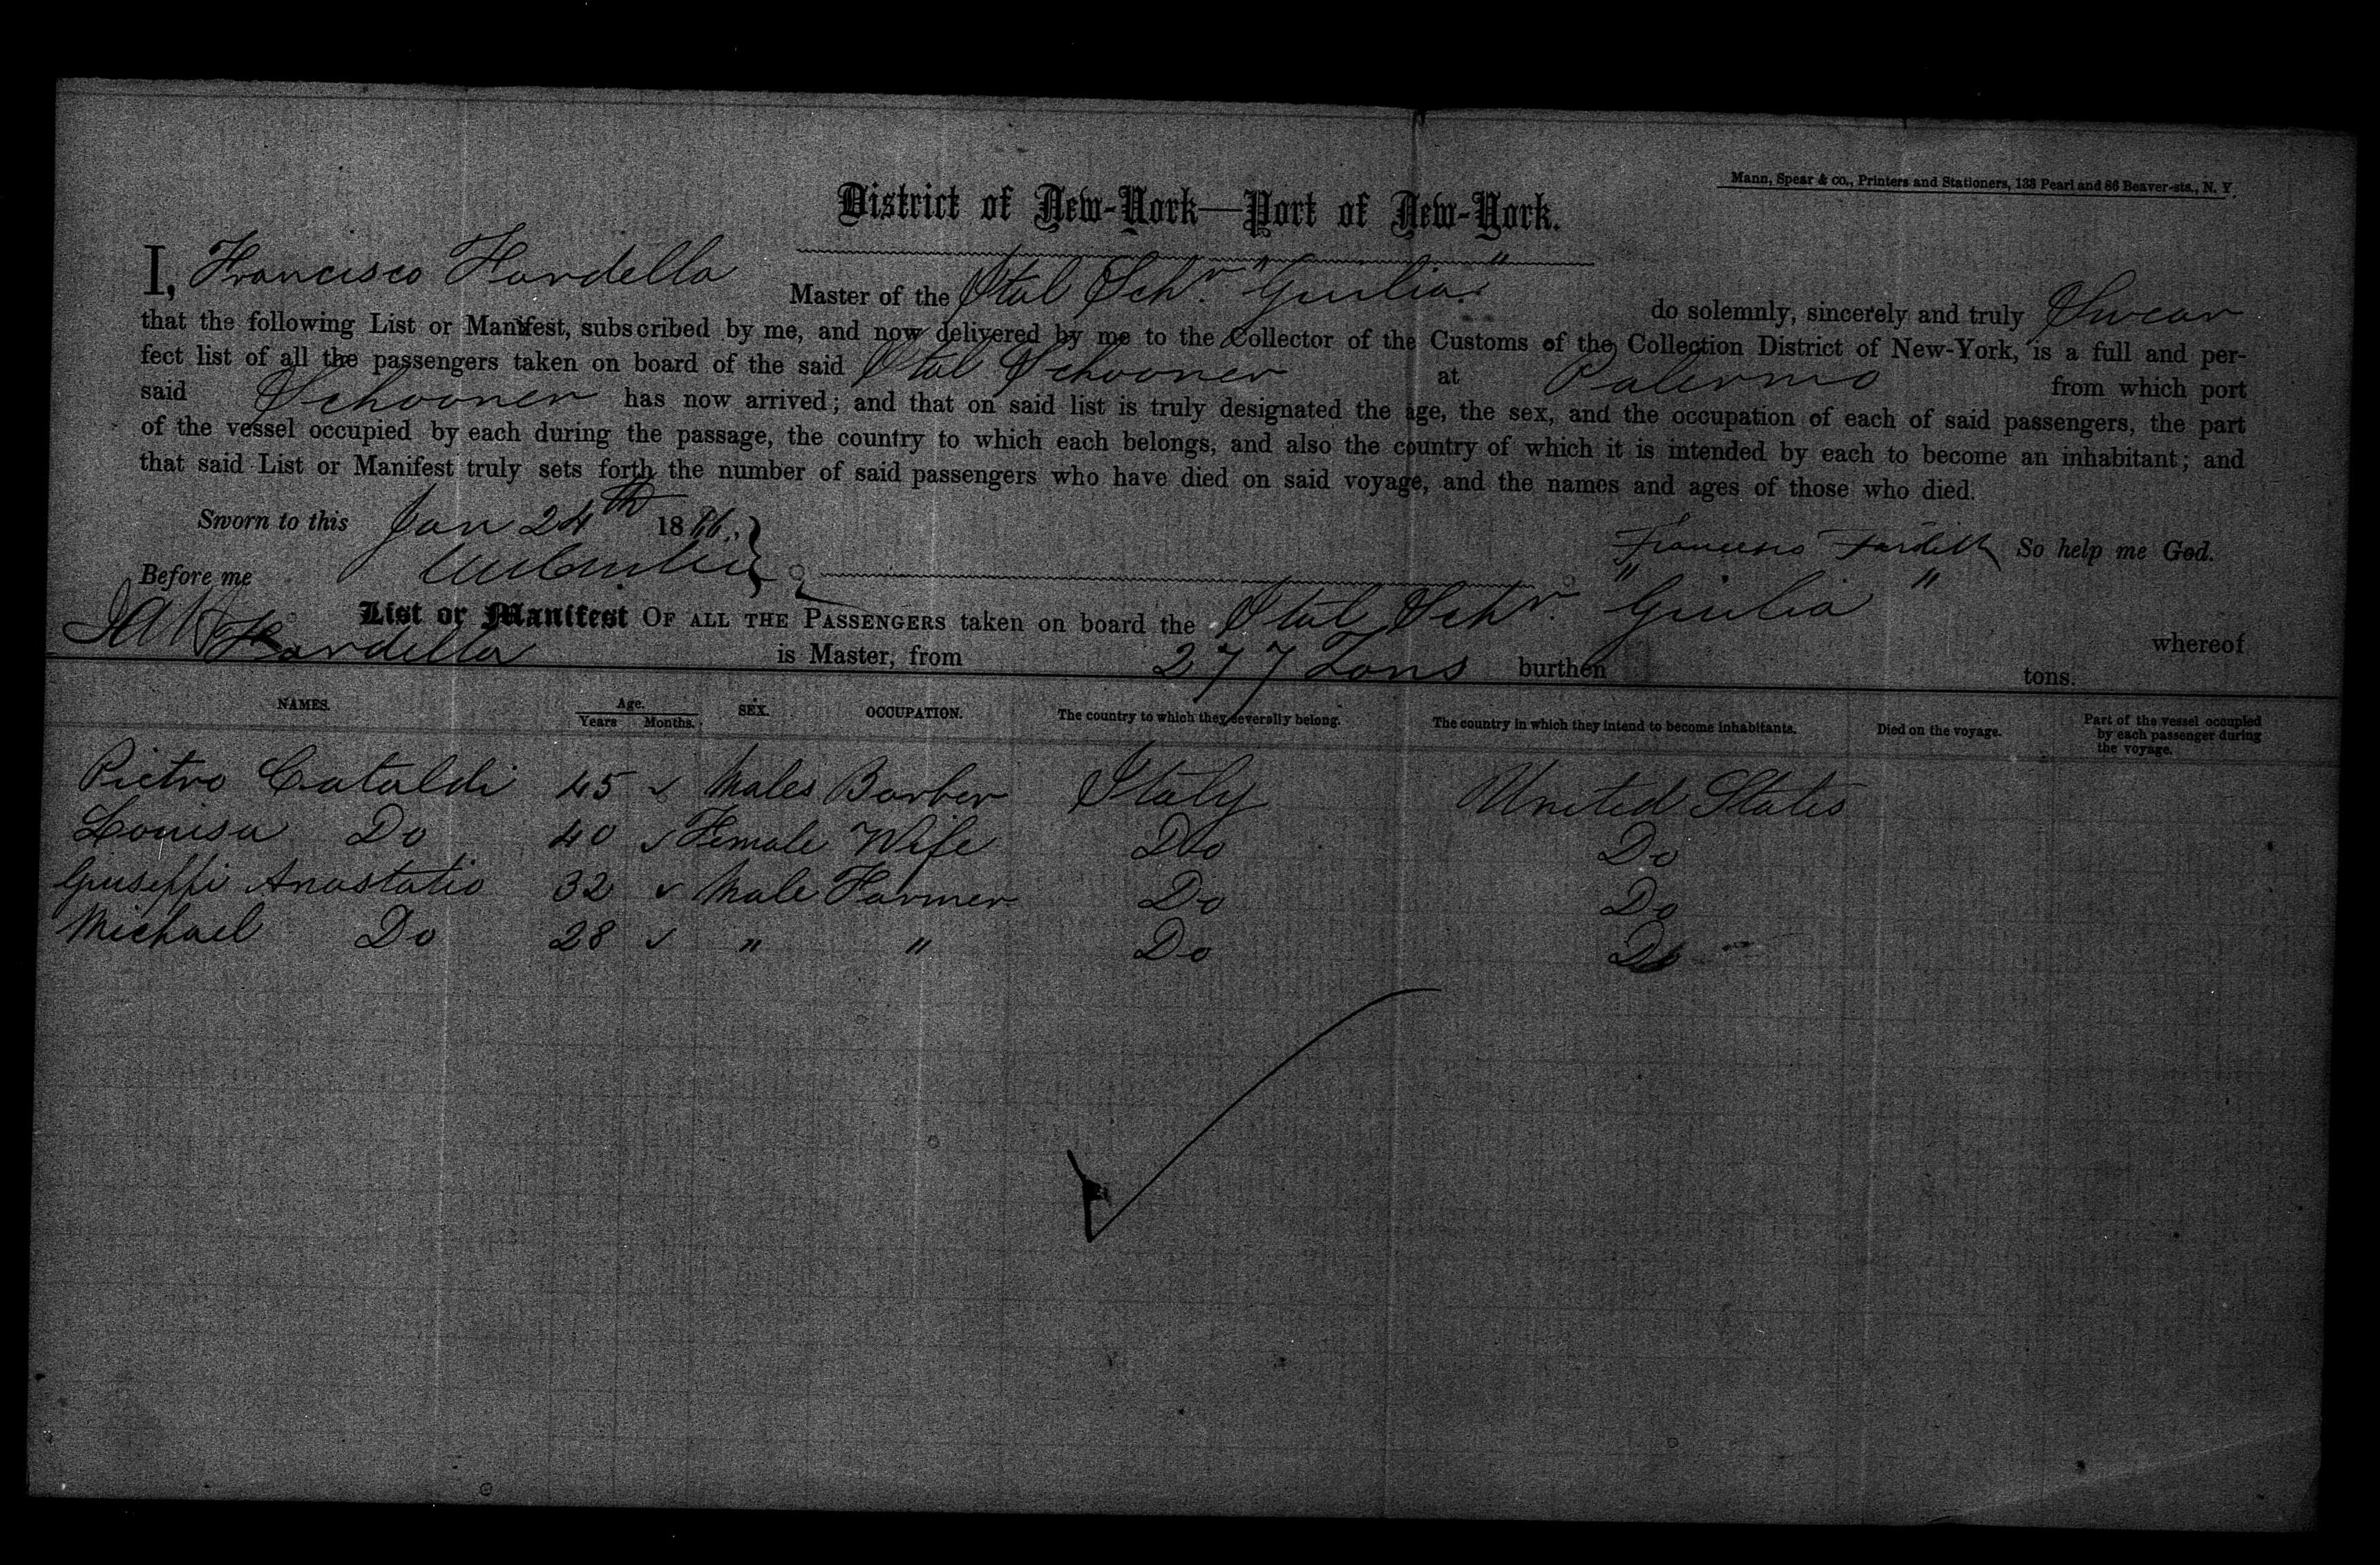 Mann, Spear & co., Printers and Stationers, 138 Pearl and 86 Beaver-sts., N. Y.
District of New-York—Port of New-York.
I, Francisco Fardella Master of the Ital Schr. "Giulia" do solemnly, sincerely and truly Swear
that the following List or Manifest, subscribed by me, and now delivered by me to the Collector of the Customs of the Collection District of New-York, is a full and per-
fect list of all the passengers taken on board of the said Ital Schooner at Palermo from which port
said Schooner has now arrived; and that on said list is truly designated the age, the sex, and the occupation of each of said passengers, the part
of the vessel occupied by each during the passage, the country to which each belongs, and also the country of which it is intended by each to become an inhabitant; and
that said List or Manifest truly sets forth the number of said passengers who have died on said voyage, and the names and ages of those who died.
Sworn to this Jan 24th 18
Francesco Fardella So help me God.
Before me
List or Manifest OF ALL THE PASSENGERS taken on board the Ital Schr. "Giulia" whereof
Fardella is Master, from 277 Tons burthen tons.
NAMES. Age. Years Months. SEX. OCCUPATION. The country to which they severally belong. The country in which they intend to become inhabitants. Died on the voyage. Part of the vessel occupied by each passenger during the voyage.
Pietro Cataldi 45 ✓ Males Barber Italy United States
Louisa Do 40 ✓ Female Wife Do Do
Giuseppi Anastatio 32 ✓ Male Farmer Do Do
Michael Do 28 ✓ " " Do Do